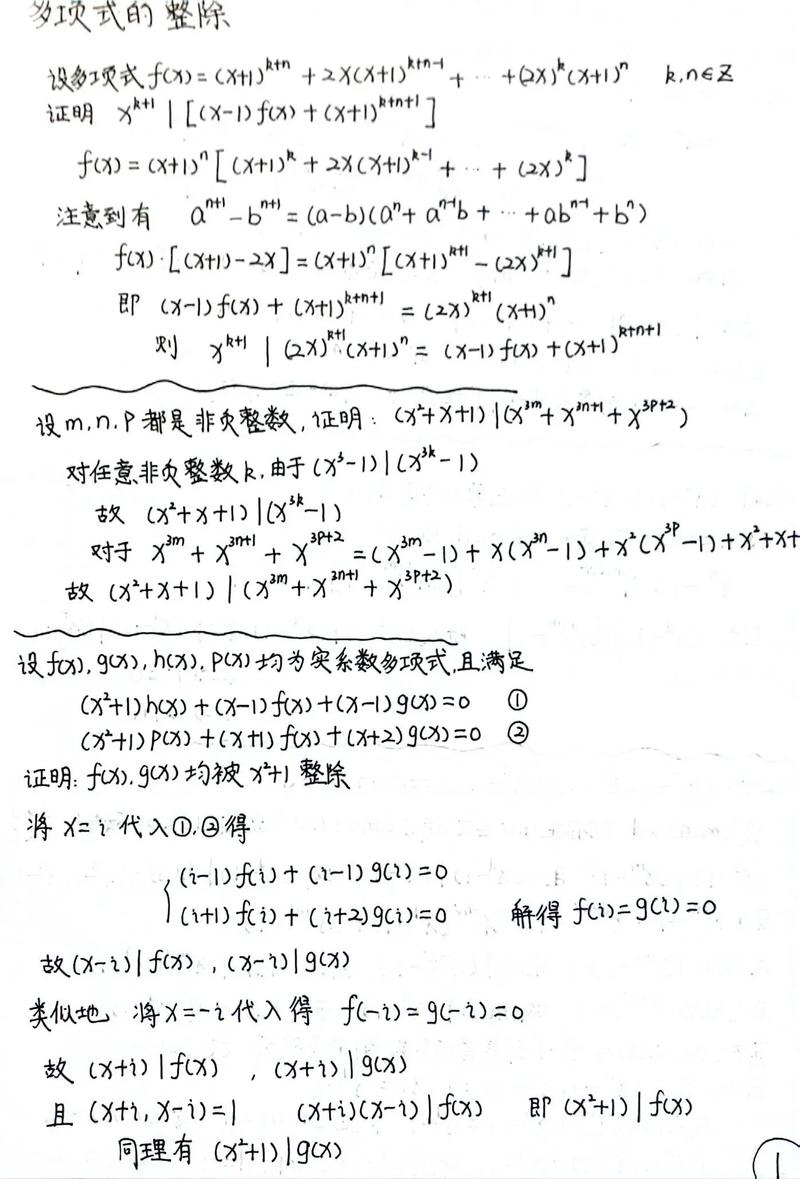 多项式的整除
设多项式 f(x) = (x+1)^{k+n} + 2x(x+1)^{k+n-1} + ⋯ + (2x)^k (x+1)^n k,n∈Z
证明 x^{k+1} | [(x-1)f(x) + (x+1)^{k+n+1}]
f(x) = (x+1)^n [(x+1)^k + 2x(x+1)^{k-1} + ⋯ + (2x)^k]
注意到有 a^{n+1} - b^{n+1} = (a-b)(a^n + a^{n-1}b + ⋯ + ab^{n-1} + b^n)
f(x)·[(x+1)-2x] = (x+1)^n [(x+1)^{k+1} - (2x)^{k+1}]
即 (x-1)f(x) + (x+1)^{k+n+1} = (2x)^{k+1} (x+1)^n
则 x^{k+1} | (2x)^{k+1} (x+1)^n = (x-1)f(x) + (x+1)^{k+n+1}
设 m,n,p 都是非负整数,证明: (x²+x+1) | (x^{3m} + x^{3n+1} + x^{3p+2})
对任意非负整数k,由于 (x³-1) | (x^{3k}-1)
故 (x²+x+1) | (x^{3k}-1)
对于 x^{3m} + x^{3n+1} + x^{3p+2} = (x^{3m}-1) + x(x^{3n}-1) + x²(x^{3p}-1) + x²+x+
故 (x²+x+1) | (x^{3m} + x^{3n+1} + x^{3p+2})
设f(x),g(x),h(x),p(x)均为实系数多项式,且满足
(x²+1)h(x) + (x-1)f(x) + (x-1)g(x) = 0 ①
(x²+1)p(x) + (x+1)f(x) + (x+2)g(x) = 0 ②
证明: f(x),g(x)均被 x²+1 整除
将 x=i 代入①,②得
{ (i-1)f(i) + (i-1)g(i) = 0
(i+1)f(i) + (i+2)g(i) = 0 解得 f(i)=g(i)=0
故(x-i) | f(x) , (x-i) | g(x)
类似地 将x=-i代入得 f(-i)=g(-i)=0
故 (x+i) | f(x) , (x+i) | g(x)
且 (x+i, x-i)=1 (x+i)(x-i) | f(x) 即 (x²+1) | f(x)
同理有 (x²+1) | g(x)
1